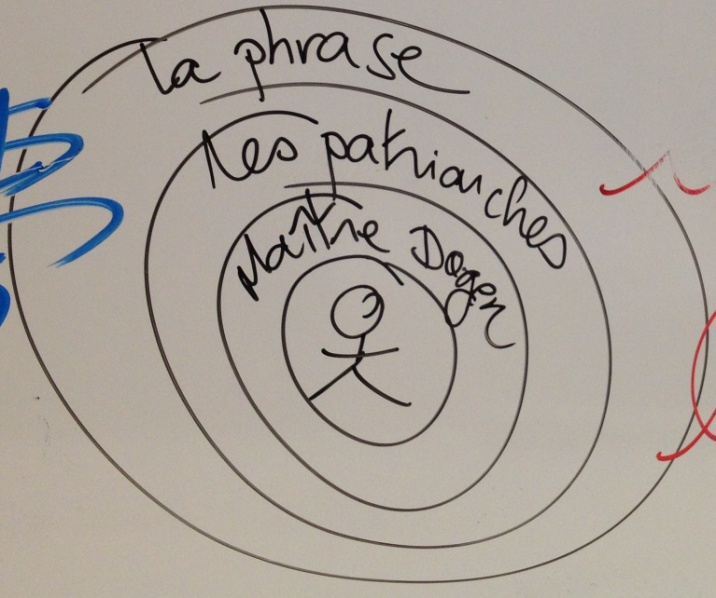 la phrase
les patriarches
Maître Dogen